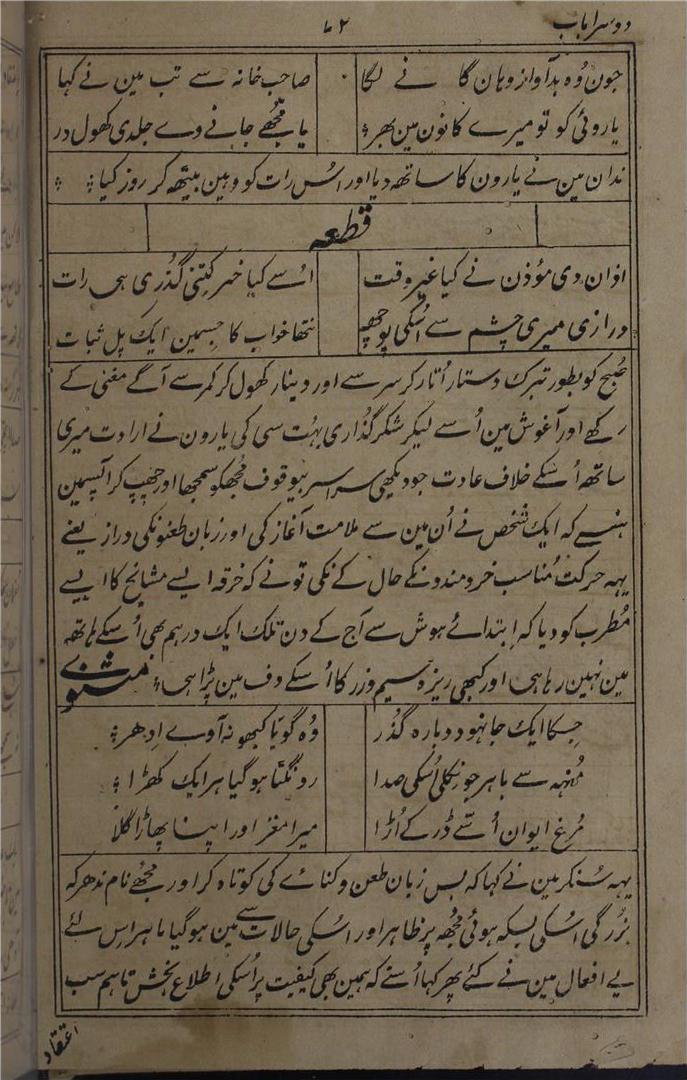 دوسرا باب ۷۲
جون وُہ بدآواز وہان گا نے لگا صاحب خانہ سے تب مین نے کہا
یا روئی کو تو میرے کانون مین بھر یا مُجھے جانے دے جلدی کھول در
ندان مین نے یارون کا ساتھہ دیا اور اُس رات کو وہین بیٹھہ کر روز کیا
قطعہ
اذان دی مؤذن نے کیا غیر وقت اسے کیا خبر کِتنی گُذری ہی رات
درازی میری چشم سے اُسکی پوچھہ نتھا خواب کا جسمین ایک پل ثبات
صُبح کو بطور تبرک دستار اُتار کر سر سے اور دینار کھول کر کمر سے آگے مغنی کے
رکھے اور آغوش مین اُسے لیکر شکر گذاری بہُت سی کی یارون نے ارادت میری
ساتھہ اُسکے خلاف عادت جو دیکھی سراسر بیوقوف مُجھکو سمجھا اور چھپ کر آپسمین
ہنسے کہ ایک شخص نے اُن مین سے ملامت آغاز کی اور زبان طعنونکی دراز یعنے
یہہ حرکت مُناسب خردمندونکے حال کے نکی تو نے کہ خرقہ ایسے مشایخ کا ایسے
مُطرب کو دیا کہ اِبتدائے ہوش سے آج کے دن تلک ایک درہم بھی اُسکے ہاتھہ
مین نہین رہا ہی اور کبھی ریزہ سیم و زر کا اُسکے دف مین پڑا ہی مثنوی
جسکا ایک جا نہو دوبارہ گذُر وُہ گویّا کبھو نہ آوے اِدھر
مُنہہ سے باہر جو نِکلی اُسکی صدا رونگٹا ہو گیا ہر ایک کھڑا
مُرغ ایوان اُسّے ڈر کے اُڑا میرا مغز اور اپنا پھاڑا گلا
یہہ سُنکر مین نے کہا کہ بس زبان طعن و کنائے کی کوتاہ کر اور مُجھے نام ندھر کہ
بزُرگی اُسکی بسکہ ہوئی مُجھہ پر ظاہر اور اُسکی حالات سے مین ہو گیا ماہر اِس لئے
یے افعال مین نے کئے پھر کہا اُسنے کہ ہمین بھی کیفیت پر اُسکی اطلاع بخش تا ہم سب
اعتقاد